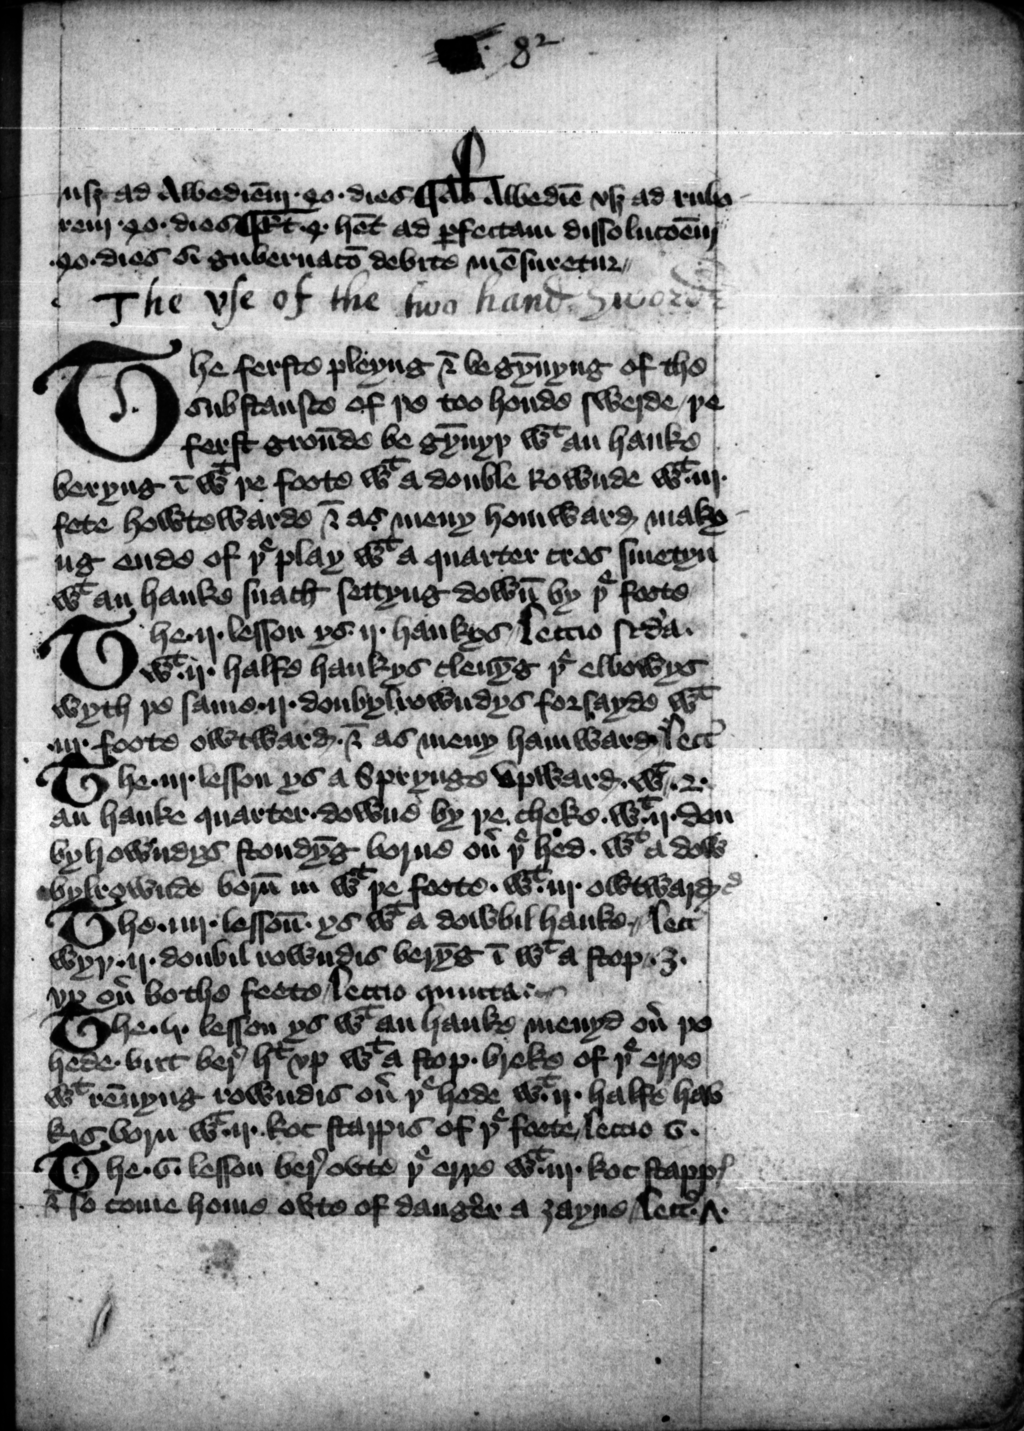 82
usq̄ ad Albediēm · 40 · dies ¶ Ab Albedīe vsq̄ ad rubo
rem · 40 · dies ¶ Et q̵ hēt ad ꝑfectam dissolucōem
40 · dies si gubernatō debite mēsuretur //
The vse of the two hand Sword
The ferste pleyng & begȳnyng of the
substanste of þe too honde swerde / þe
ferst grounde be gȳnyþ wͭ an hanke
beryng ī wͭ þe foote wͭ a double Rownde wͭ · iij ·
fete howtewarde & as meny homward mak
yng ende of yͤ play wͭ a quarter cros smetyn
wͭ an hanke snach settyng down̄ by yͤ foote
The · ij · lesson ys · ij · hankys / leccio scd̄a ·
wͭ · ij · halfe hankys clenȳg yͤ elbowys
wyth þe same · ij · doubylrowndys forsayde wͭ
· iij · foote owtward · & as meny hamward / lecc̄
The · iij · lesson ys a Sprynge vpward · wͭ · 2 ·
an hanke quarter · downe by þe cheke · wͭ · ij · dou
byl rowndys stondȳg borne ou̓ yͤ hed · wͭ a dow
bylrownde born̄ in wͭ þe foote · wͭ · iij · owtward
The · iiij · lesson̄ · ys wͭ a dowbil hanke // lecc̄
wyþ · ij · doubil rowndis berȳg ī wͭ a stop · 3 ·
vp ou̓ bothe feete / leccio quinta
The · v · lesson ys wͭ an hanke menyd ou̓ þe
hede · bitt ber̓ hͭ vp wͭ a stop · breke of yͤ erþe
wͭ rēnyng rowndis ou̓ yͤ hede wͭ · ij · halfe han
kis born wͭ · ij · koc stappis of yͤ foete / leccio 6 ·
The · 6 · lesson ber̓ ovte yͤ erþe wͭ · iij · koc stapp
& so come home ovte of dangēr a zayne / lecc̄ · 7 ·